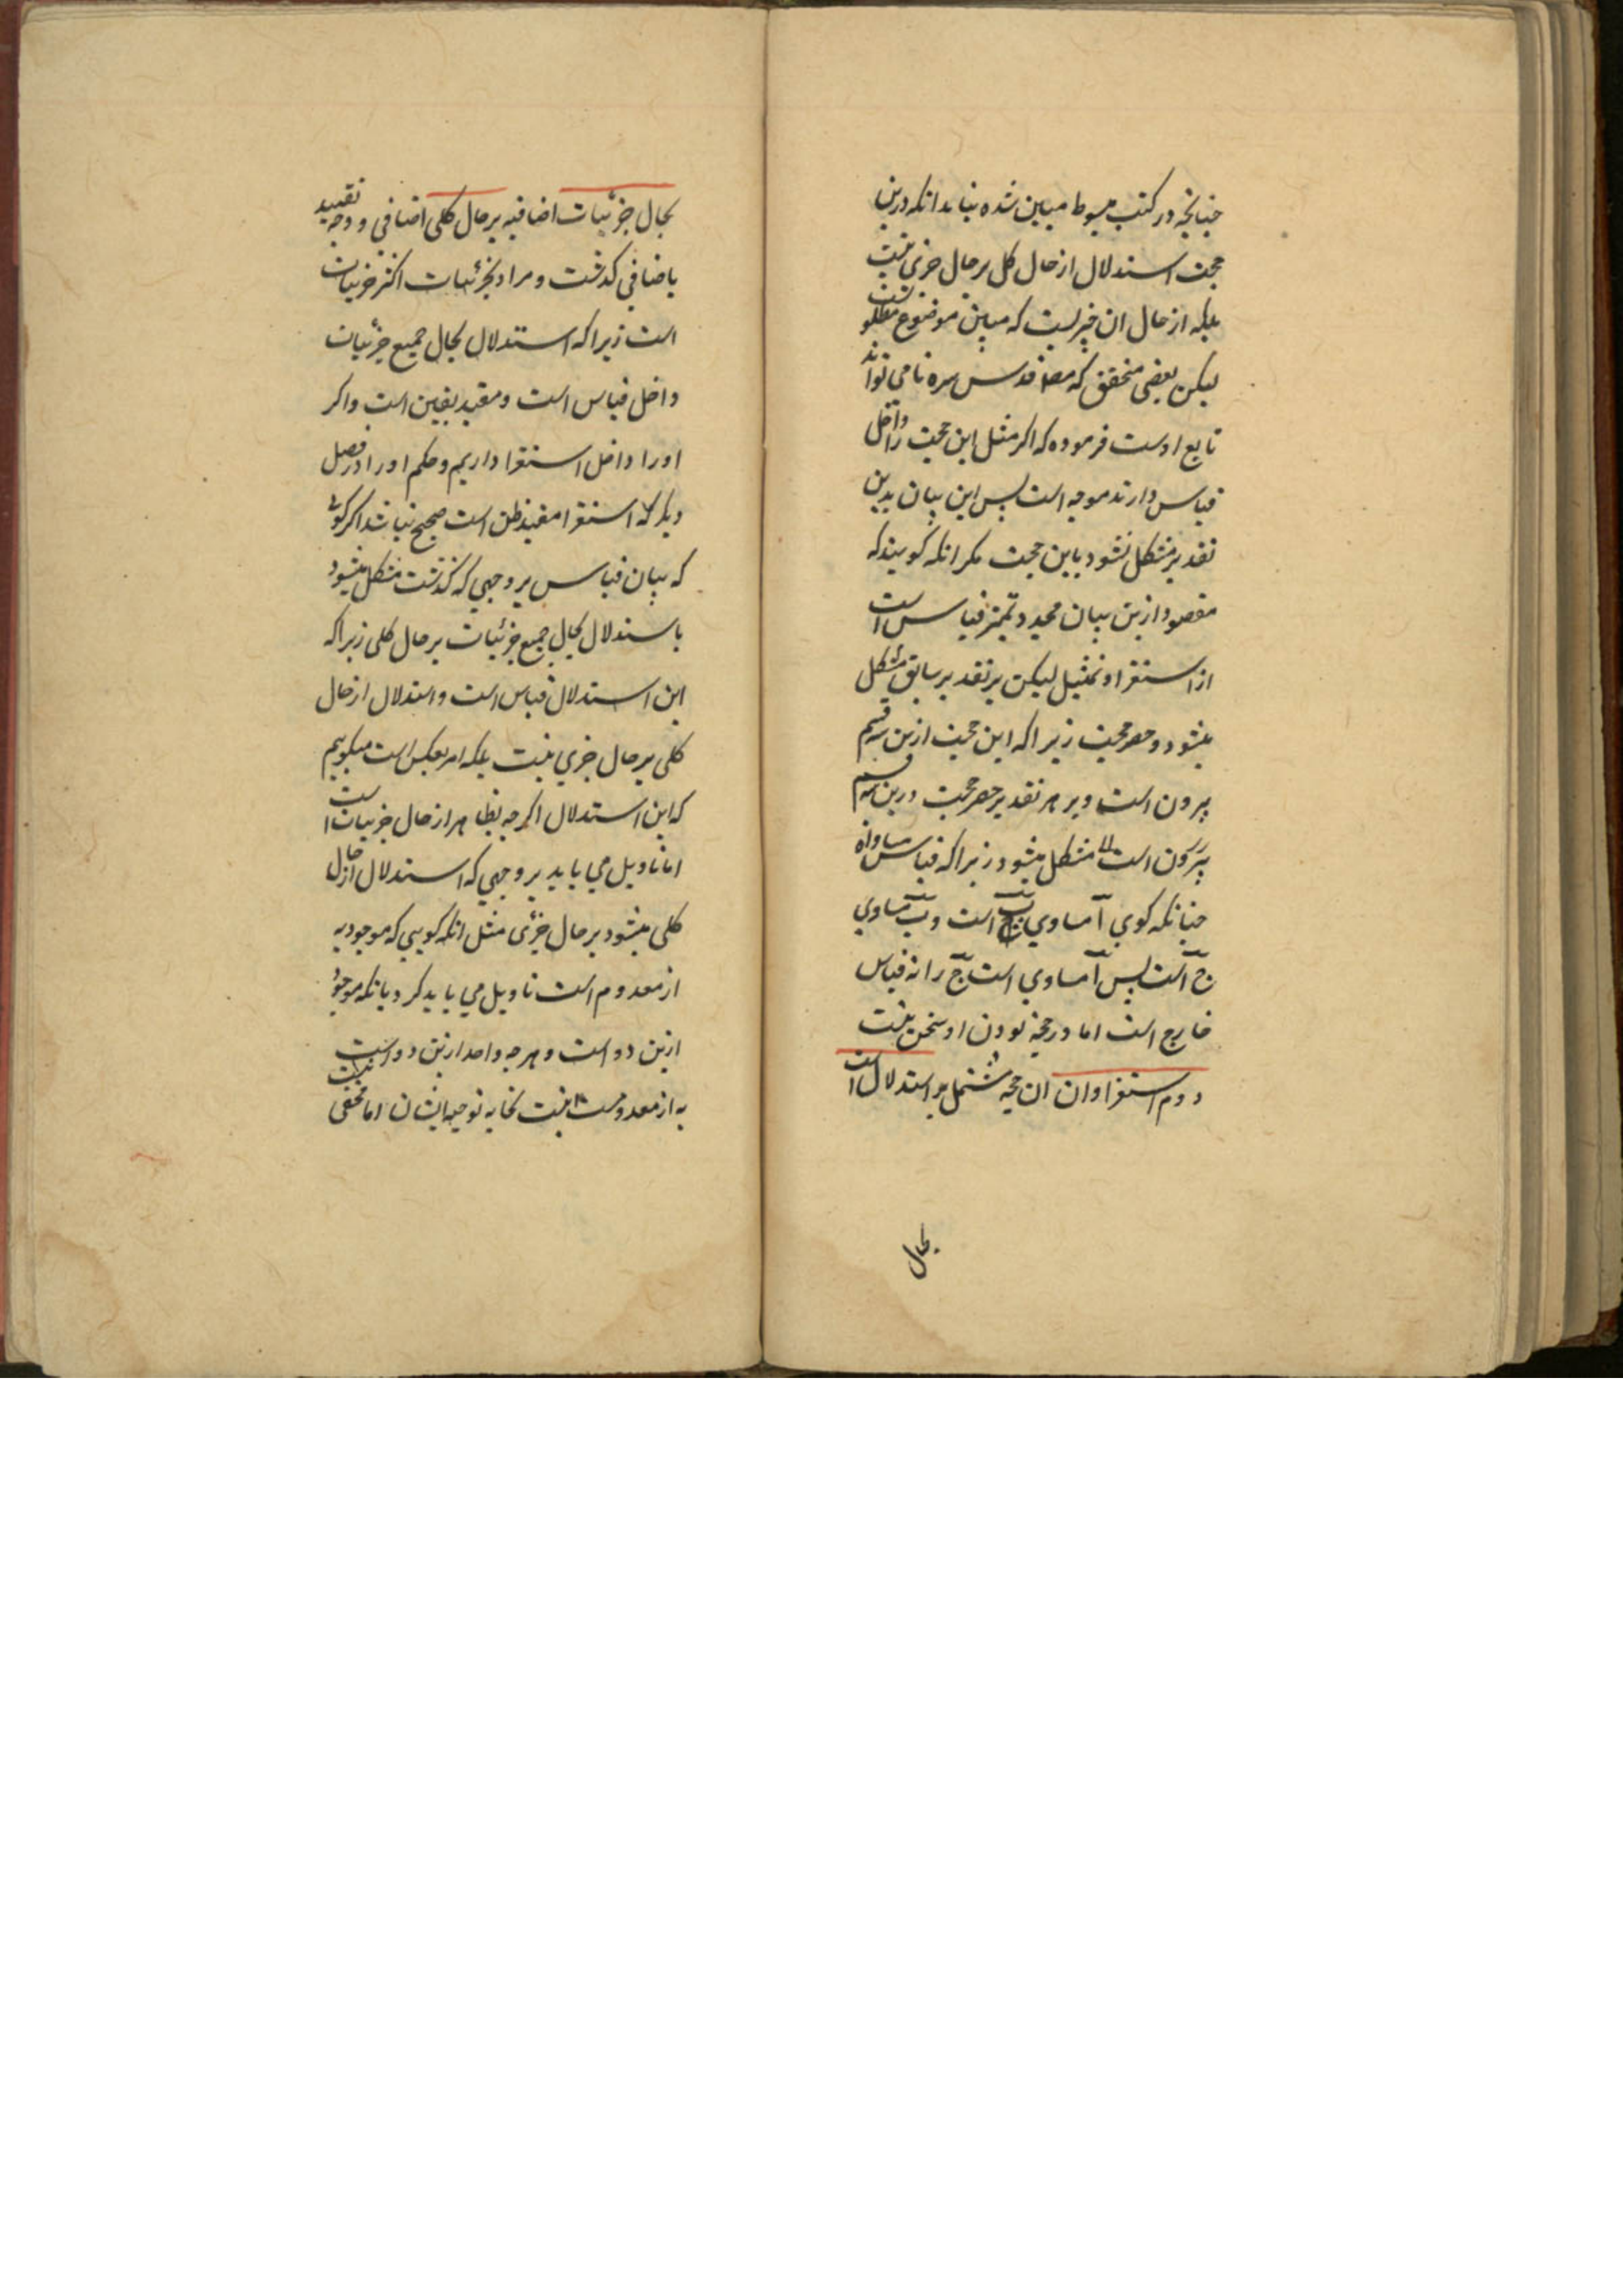 چنانچه در کتب مبسوط مبین شده بنابر انکه درین
حجت استدلال از حال کل بر حال جزی نیست
بلکه از حال ان چیزیست که مباین موضوع مطلوبست
لیکن بعضی محقق که مصنف قدس سره نا می تواند
تابع اوست فرموده که اکر مثل این حجت را داخل
قیاس دارند موجه است پس این بیان بدین
تقدیر مشکل نشود باین حجت مکر انکه کویند که
مقصود ازین بیان مجرد تمیز قیاس است
از استقرا و تمثیل لیکن بر تقدیر سابق مشکل
میشود حصر حجت زیرا که این حجت ازین سه قسم
بیرون است و بر هر تقدیر حصر حجت درین سه قسم
بیرون است مشکل میشود زیرا که قیاس مساواة
چنانکه کوی آ مساوی ب است و ب مساوی
ج است پس آ مساوی است ج را نه قیاس
خارج است اما در حجة بودن او سخن نیست
دوم استقرا و ان ان حجة مشتمل بر استدلال است
بحال
بحال جزئیات اضافیه بر حال کلی اضافی و وجه تقیید
باضافی کدشت و مراد بجزئیات اکثر جزئیات
است زیرا که استدلال بحال جمیع جزئیات
داخل قیاس است و مفید یقین است و اکر
اورا داخل استقرا داریم و حکم اورا در فصل
دیکر که استقرا مفید ظن است صحیح نباشد اکر کوئی
که بیان قیاس بر وجهی که کذشت مشکل میشود
باستدلال بحال جمیع جزئیات بر حال کلی زیرا که
این استدلال قیاس است و استدلال از حال
کلی بر حال جزی نیست بلکه امر بعکس است میکوییم
که این استدلال اکرچه بظاهر از حال جزییات است
اما تاویل می باید بر وجهی که استدلال از حال
کلی میشود بر حال جزئی مثل انکه کویی که موجود به
از معدوم است تاویل می باید کرد بانکه موجود
ازین دو است و هرچه واحد ازین دو است
به از معدومست نیست توجیه ایشان اما مخفی